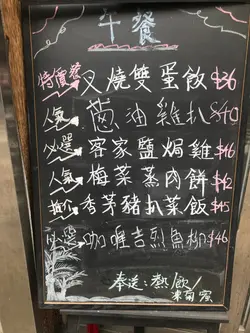 午餐
特價餐 叉燒雙蛋飯 $36
人氣 蔥油雞扒 $40
必選 客家鹽焗雞 $46
人氣 梅菜蒸肉餅 $42
推介 香茅豬扒菜飯 $45
必選 咖喱吉烈魚柳 $46
奉送：熱飲/